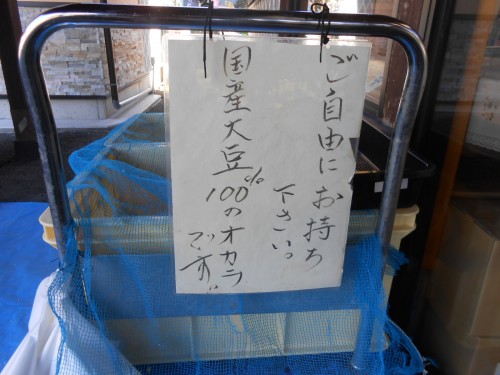 ご自由にお持ち
下さい。
国産大豆
100%のオカラ
です!!